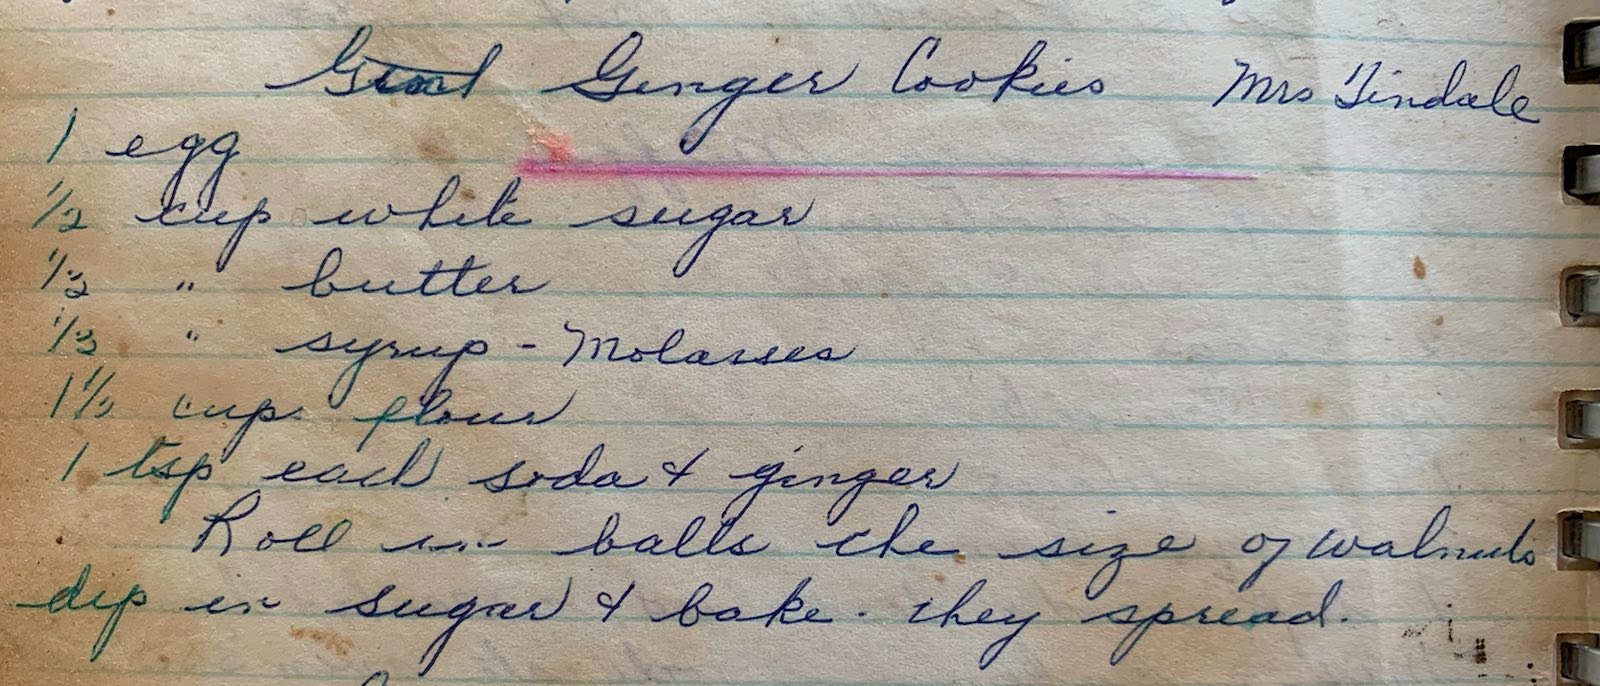 Good Ginger Cookies Mrs Tindale
1 egg
1/2 cup white sugar
1/2 " butter
1/3 " syrup - Molasses
1 1/2 cups flour
1 tsp each soda & ginger
Roll in balls the size of walnuts
dip in sugar & bake. they spread.